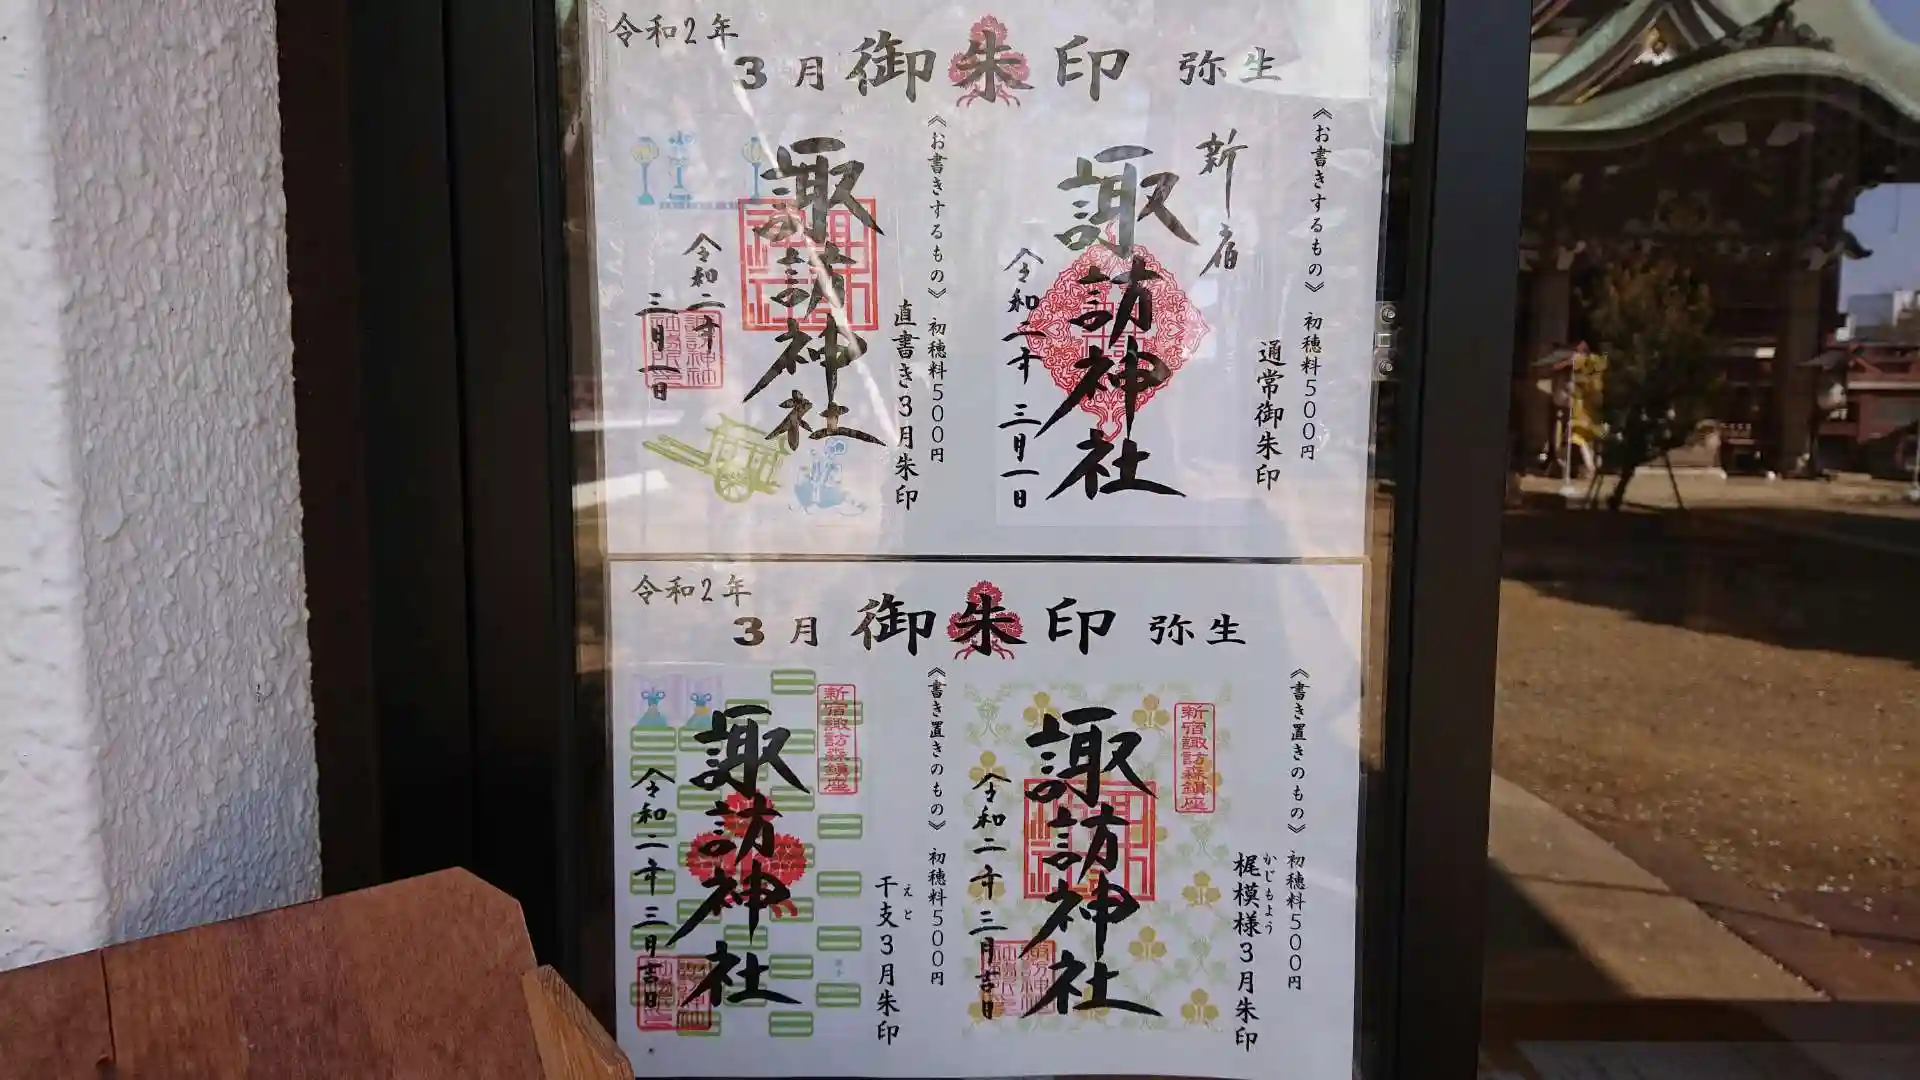 令和2年
3月 御朱印 弥生
《お書きするもの》 初穂料500円
通常御朱印
新宿
諏訪神社
令和二年 三月一日
《お書きするもの》 初穂料500円
直書き3月朱印
諏訪神社
令和二年
三月一日
令和2年
3月 御朱印 弥生
《書き置きのもの》 初穂料500円
かじもよう
梶模様3月朱印
新宿諏訪森鎮座
諏訪神社
令和二年三月吉日
《書き置きのもの》 初穂料500円
えと
干支3月朱印
新宿諏訪森鎮座
諏訪神社
令和二年三月吉日